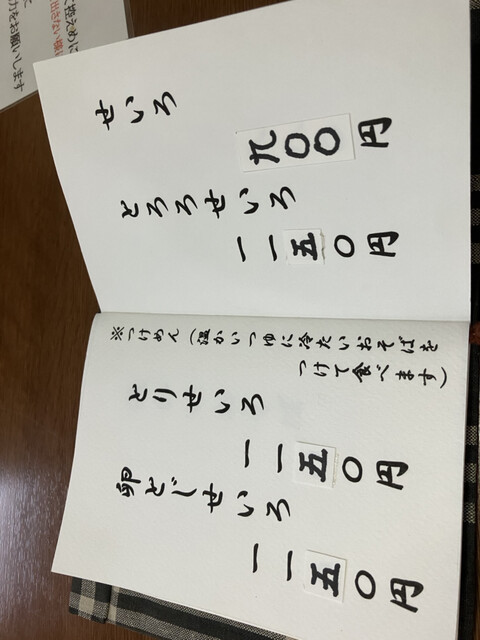 せいろ
九〇〇円
とろろせいろ
一一五〇円
※つけめん(温かいつゆに冷たいおそばを
つけて食べます)
とりせいろ
一一五〇円
卵とじせいろ
一一五〇円
控えめに
出さない様
力をお願いします